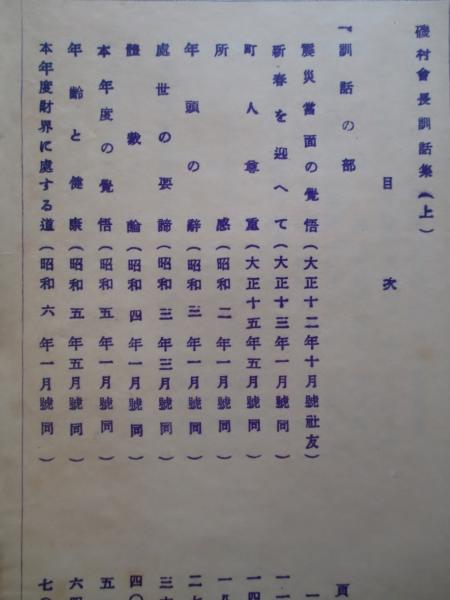 磯村會長訓話集(上)
目次
頁
一、訓話の部
震災當面の覺悟(大正十二年十月號社友)一
新春を迎へて(大正十三年一月號同)一一
町人尊重(大正十五年五月號同)一四
所感(昭和二年一月號同)一八
年頭の辭(昭和三年一月號同)二七
處世の要諦(昭和三年三月號同)三
體數論(昭和四年一月號同)四〇
本年度の覺悟(昭和五年一月號同)五
年齡と健康(昭和五年五月號同)六四
本年度財界に處する道(昭和六年一月號同)七